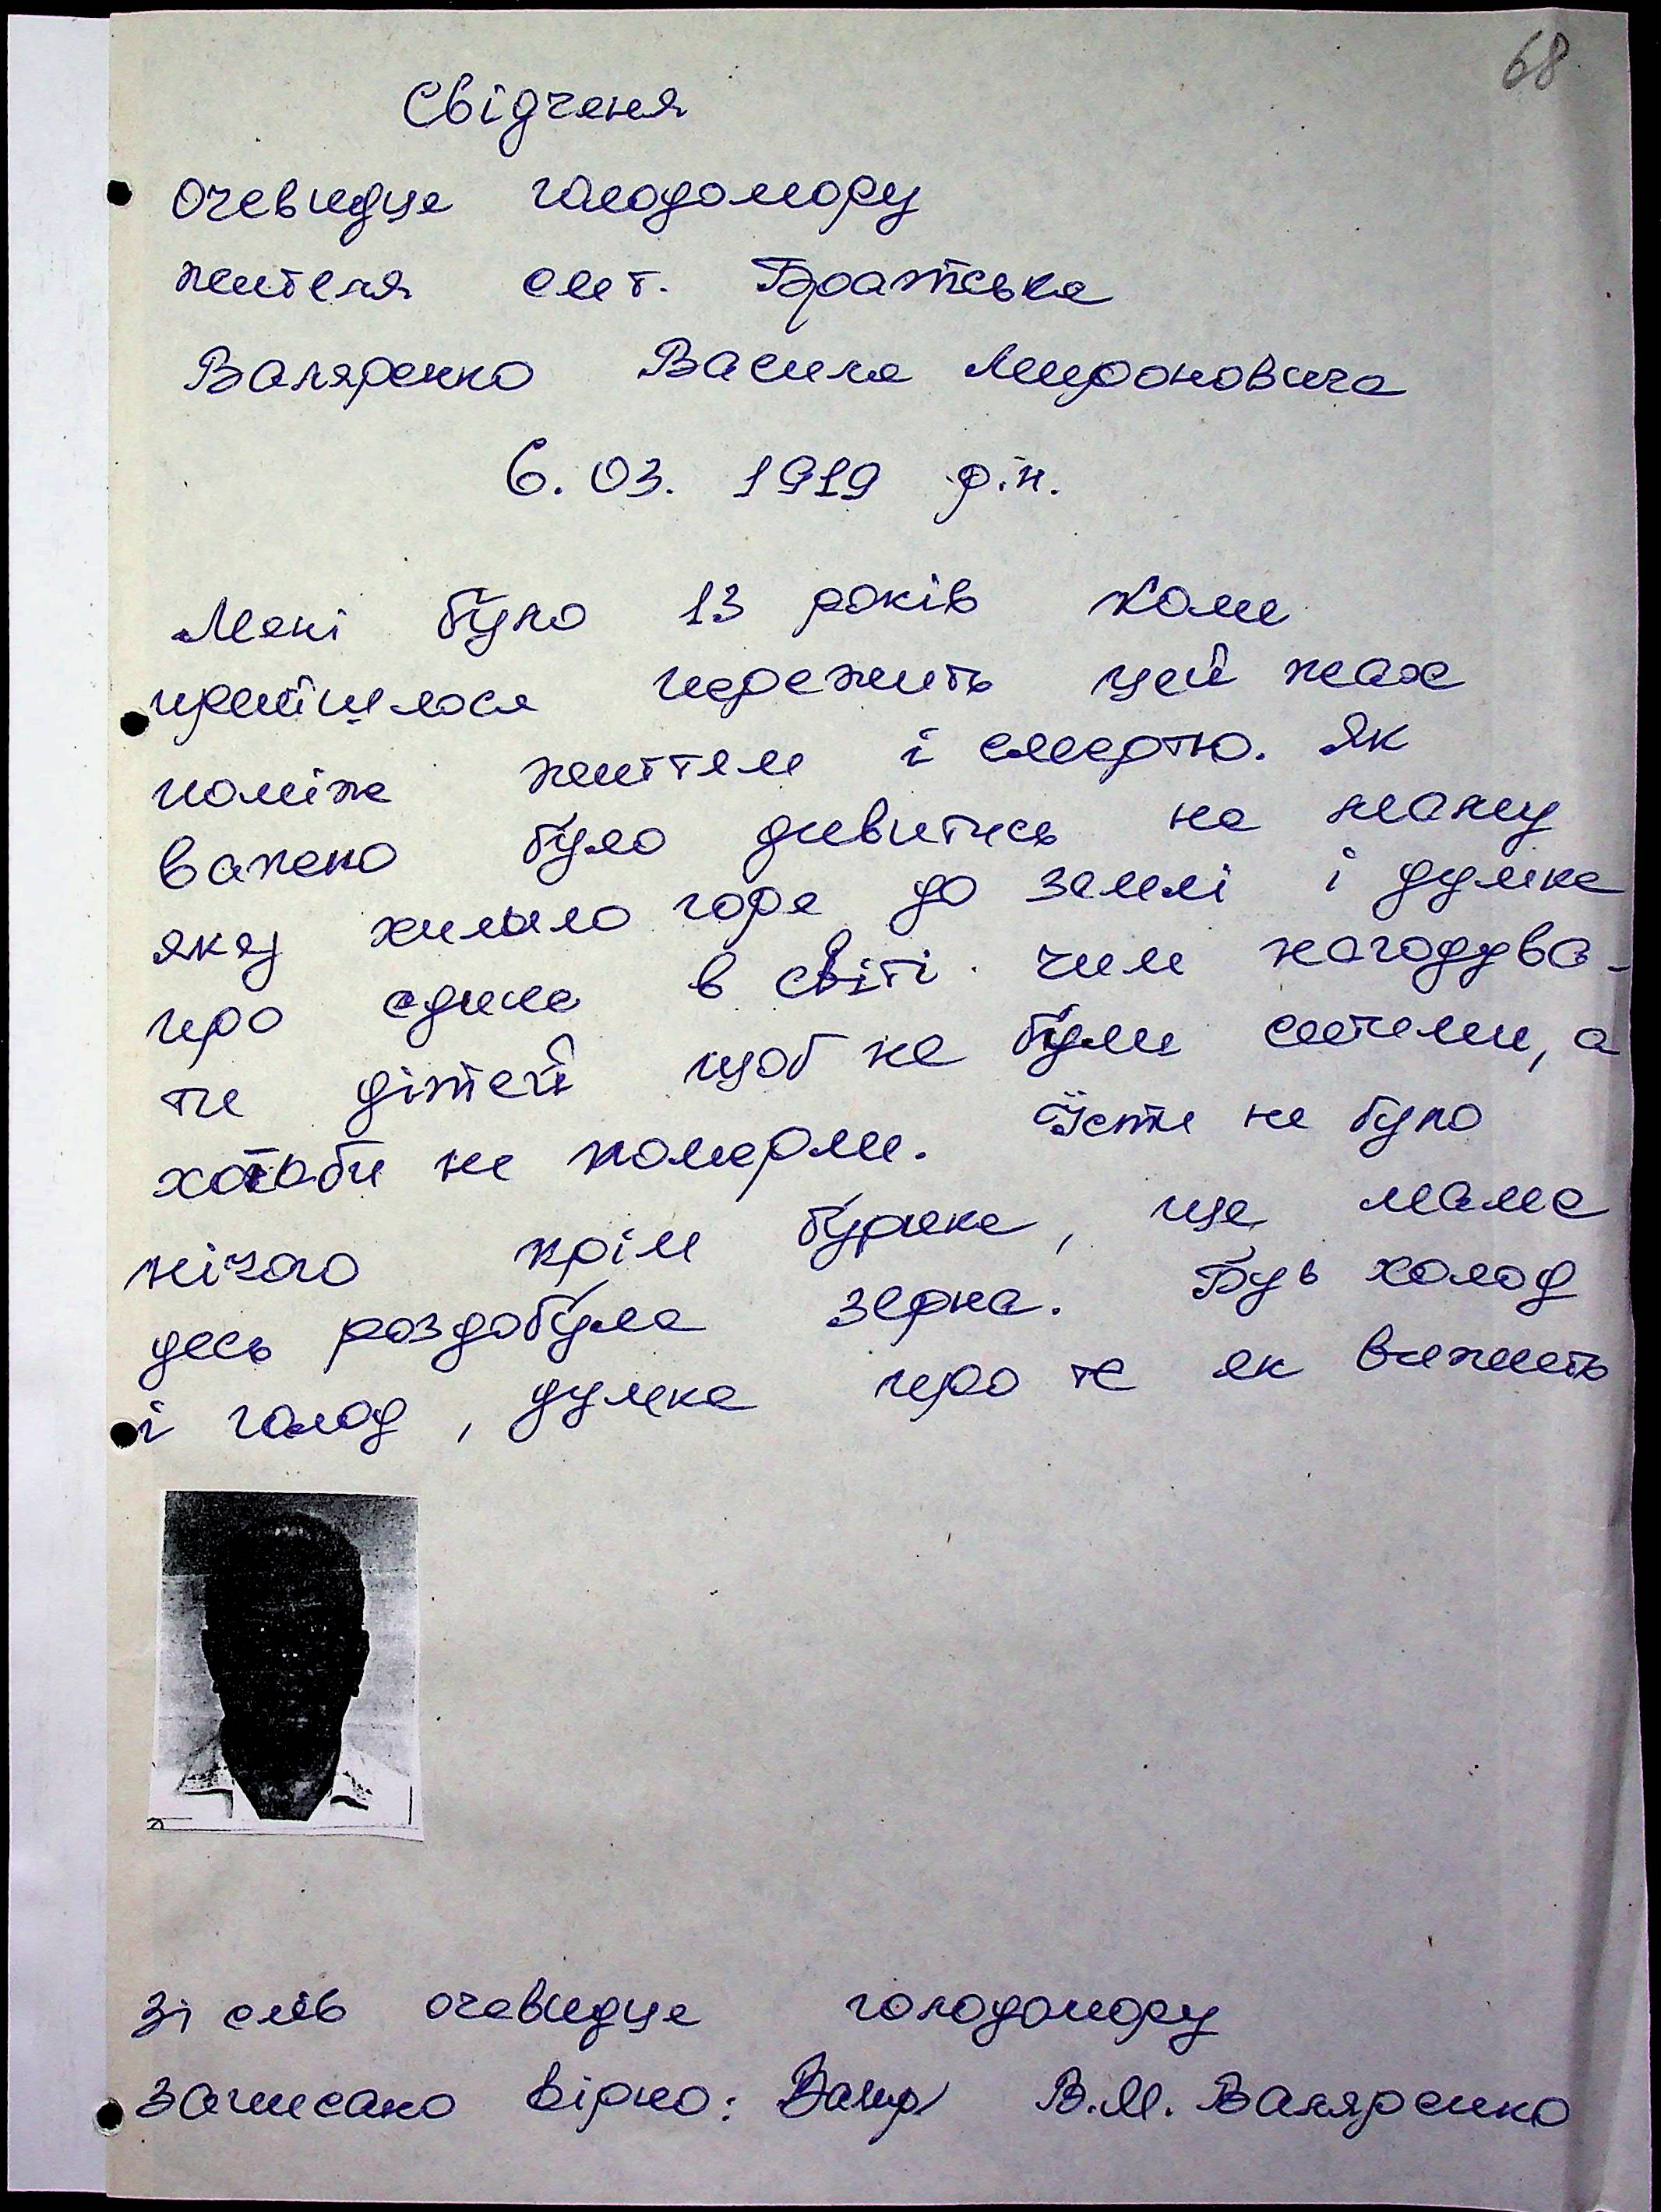 68
Свідченя
очевидця голодомору
жителя смт. Братське
Валяренко Василя Мироновича
6. 03. 1919 р.н.
Мені було 13 років коли
прийшлося пережить цей жах
поміж життям і смертю. Як
важено було дивитись на маму
яку хилило горе до землі і думка
про єдине в світі чим нагодува-
ти дітей щоб не були ситими, а
хотаби не померли. Їсти не було
нічого крім буряка, ще мама
десь роздобула зерна. Був холод
і голод, думка про те як вижить
Зі слів очевидця голодомору
записано вірно: В.М. Валяренко